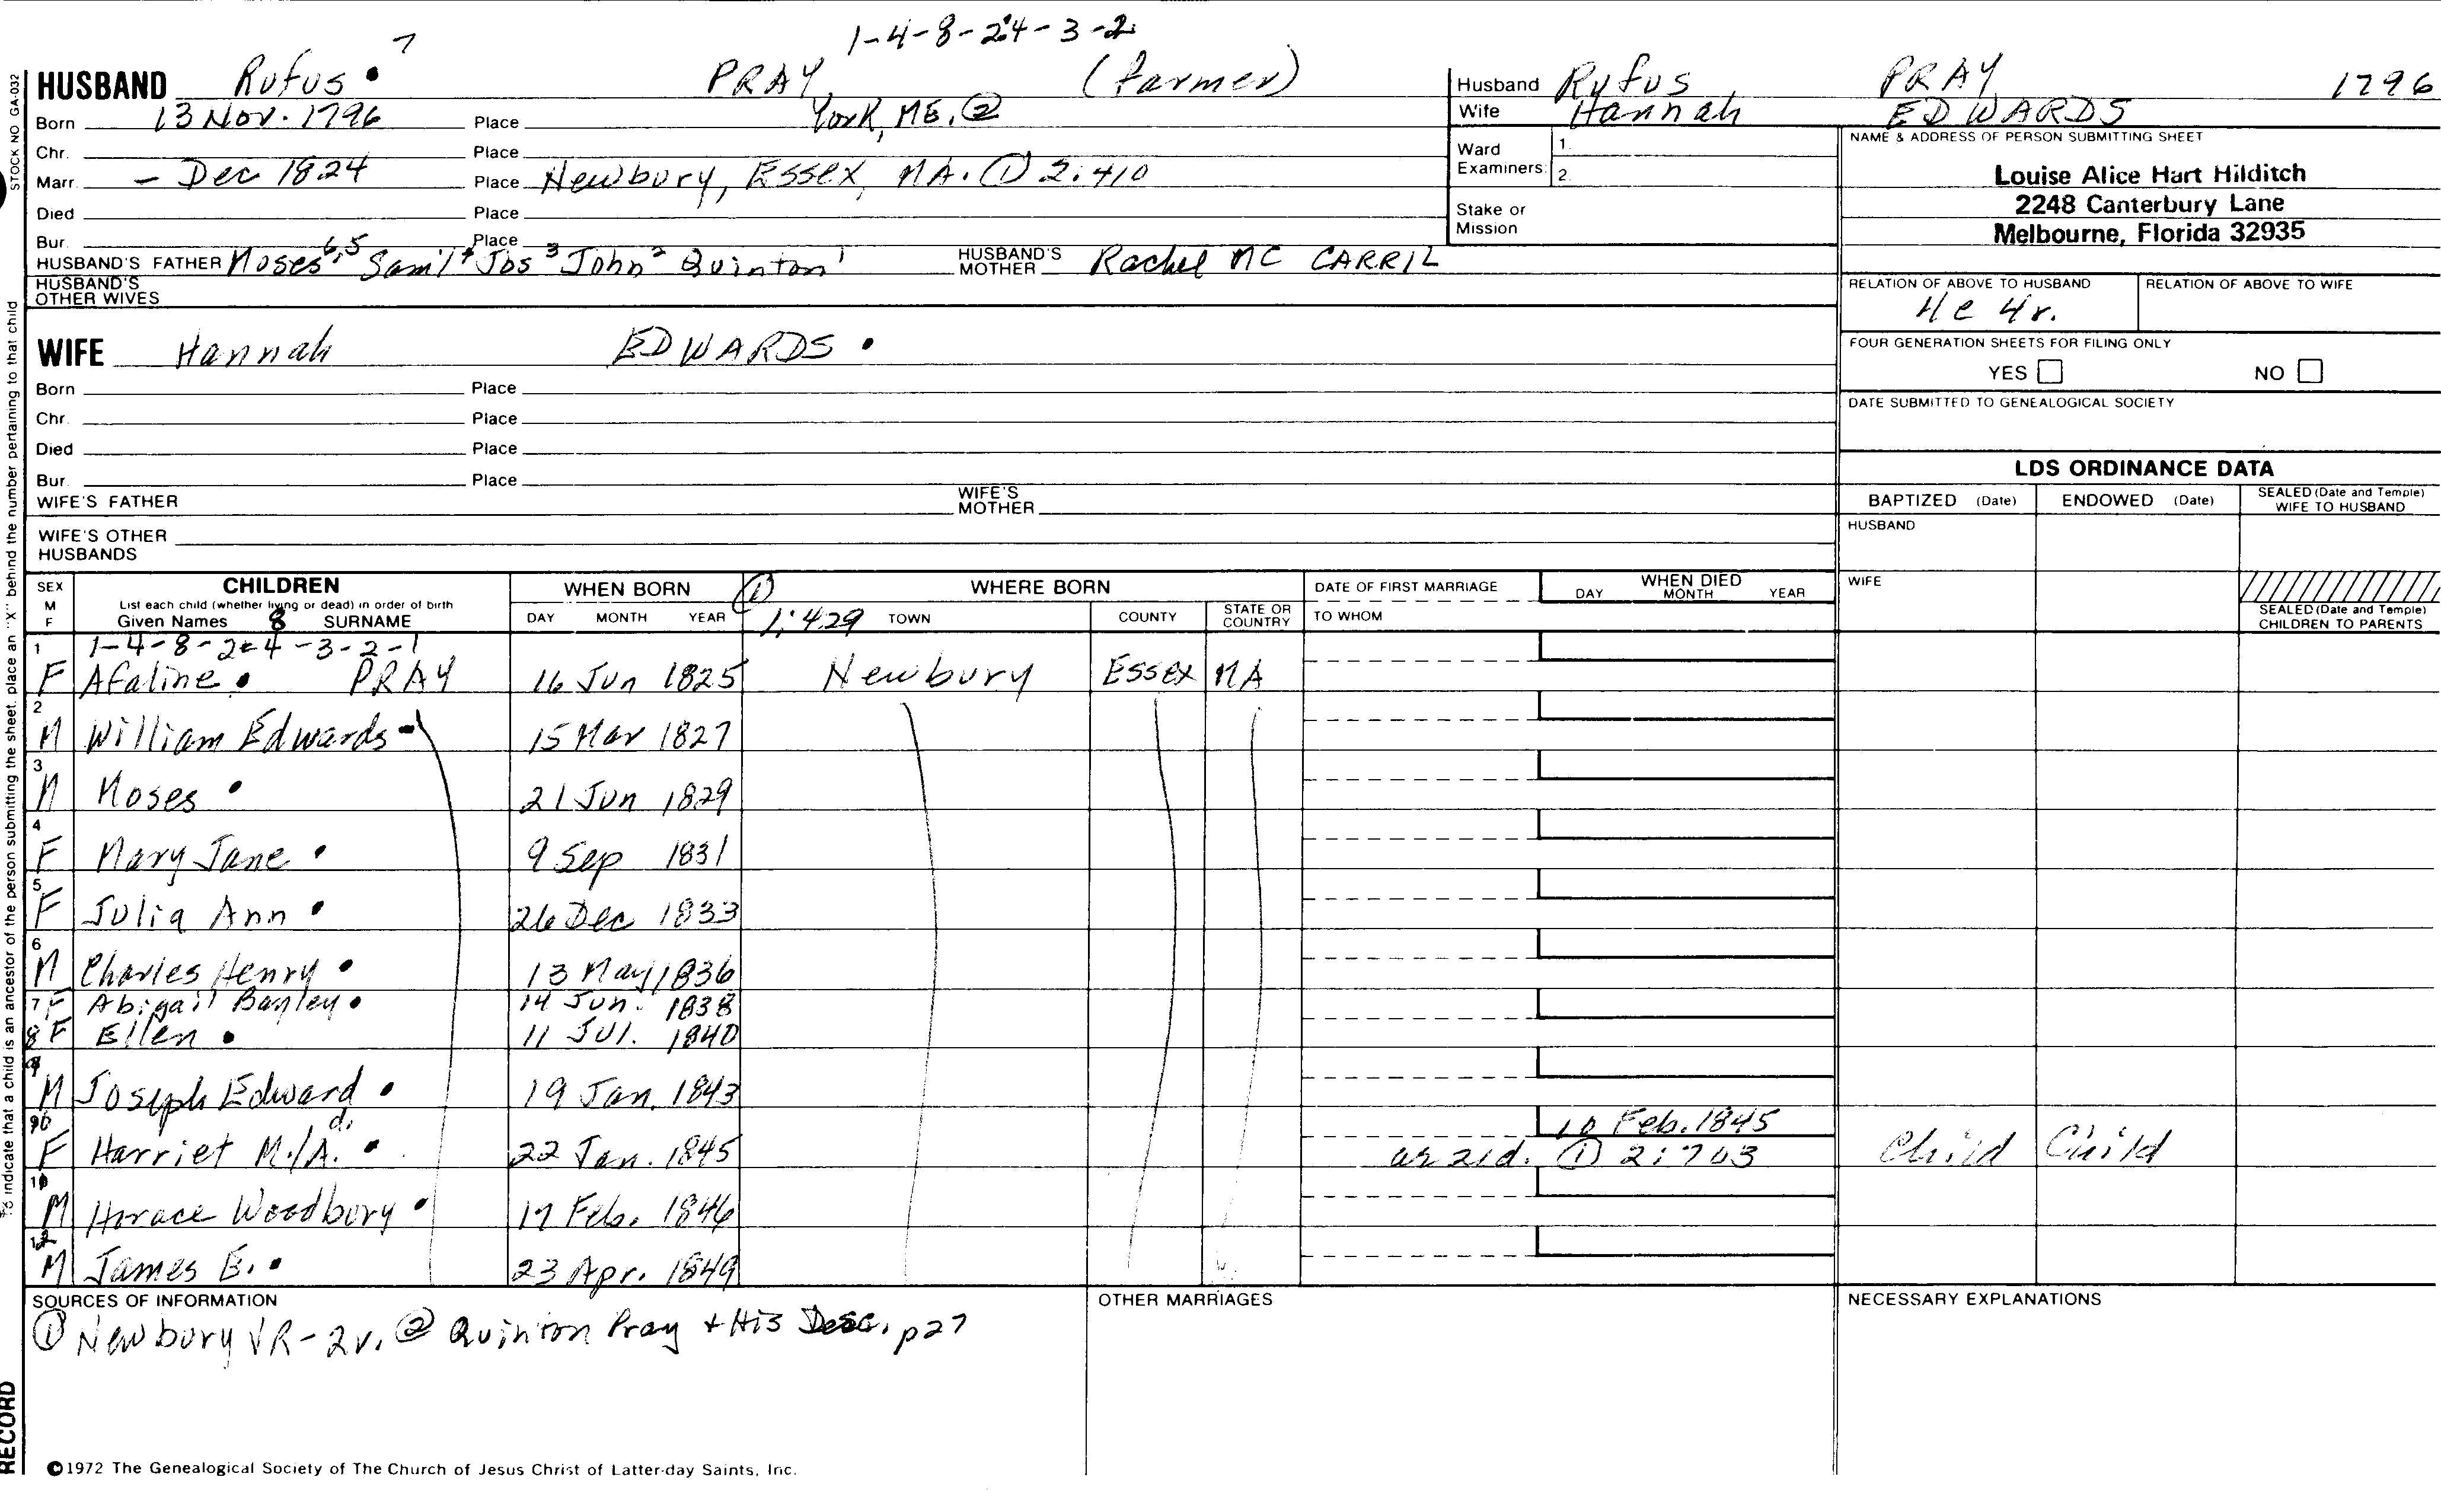 1-4-8-24-3-2
HUSBAND Rufus 7 PRAY (farmer)
Born 13 Nov. 1796 Place York, ME. ②
Chr. Place
Marr. - Dec 1824 Place Newbury, Essex, MA. ① 2:410
Died Place
Bur. Place
HUSBAND'S FATHER Moses 6,5 Sam'l 4 Jos 3 John 2 Quinton 1 HUSBAND'S MOTHER Rachel MC CARRIL
HUSBAND'S OTHER WIVES
Husband Rufus PRAY 1796
Wife Hannah EDWARDS
Ward Examiners: 1. 2.
Stake or Mission
NAME & ADDRESS OF PERSON SUBMITTING SHEET
Louise Alice Hart Hilditch
2248 Canterbury Lane
Melbourne, Florida 32935
RELATION OF ABOVE TO HUSBAND RELATION OF ABOVE TO WIFE
4c 4r.
FOUR GENERATION SHEETS FOR FILING ONLY
YES NO
DATE SUBMITTED TO GENEALOGICAL SOCIETY
WIFE Hannah EDWARDS
Born Place
Chr. Place
Died Place
Bur. Place
WIFE'S FATHER WIFE'S MOTHER
WIFE'S OTHER HUSBANDS
LDS ORDINANCE DATA
BAPTIZED (Date) ENDOWED (Date) SEALED (Date and Temple) WIFE TO HUSBAND
HUSBAND
WIFE
SEALED (Date and Temple) CHILDREN TO PARENTS
SEX M F CHILDREN WHEN BORN ① WHERE BORN DATE OF FIRST MARRIAGE WHEN DIED
List each child (whether living or dead) in order of birth
Given Names 8 SURNAME DAY MONTH YEAR 1:429 TOWN COUNTY STATE OR COUNTRY TO WHOM DAY MONTH YEAR
1-4-8-24-3-2-1
1 F Afaline PRAY 16 Jun 1825 Newbury Essex MA
2 M William Edwards 15 Mar 1827
3 M Moses 21 Jun 1829
4 F Mary Jane 9 Sep 1831
5 F Julia Ann 26 Dec 1833
6 M Charles Henry 13 May 1836
7 F Abigail Bayley 14 Jun. 1838
8 F Ellen 11 Jul. 1840
9 M Joseph Edward 19 Jan. 1843
10 F Harriet M./A. d. 22 Jan. 1845 10 Feb. 1845
ae 21d. ① 2:703 Child Child
M Horace Woodbury 17 Feb. 1846
12 M James E. 23 Apr. 1849
SOURCES OF INFORMATION
① Newbury VR-2v. ② Quinton Pray + His Desc. p27
OTHER MARRIAGES
NECESSARY EXPLANATIONS
©1972 The Genealogical Society of The Church of Jesus Christ of Latter-day Saints, Inc.
STOCK NO GA-032
To indicate that a child is an ancestor of the person submitting the sheet, place an "X" behind the number pertaining to that child
RECORD